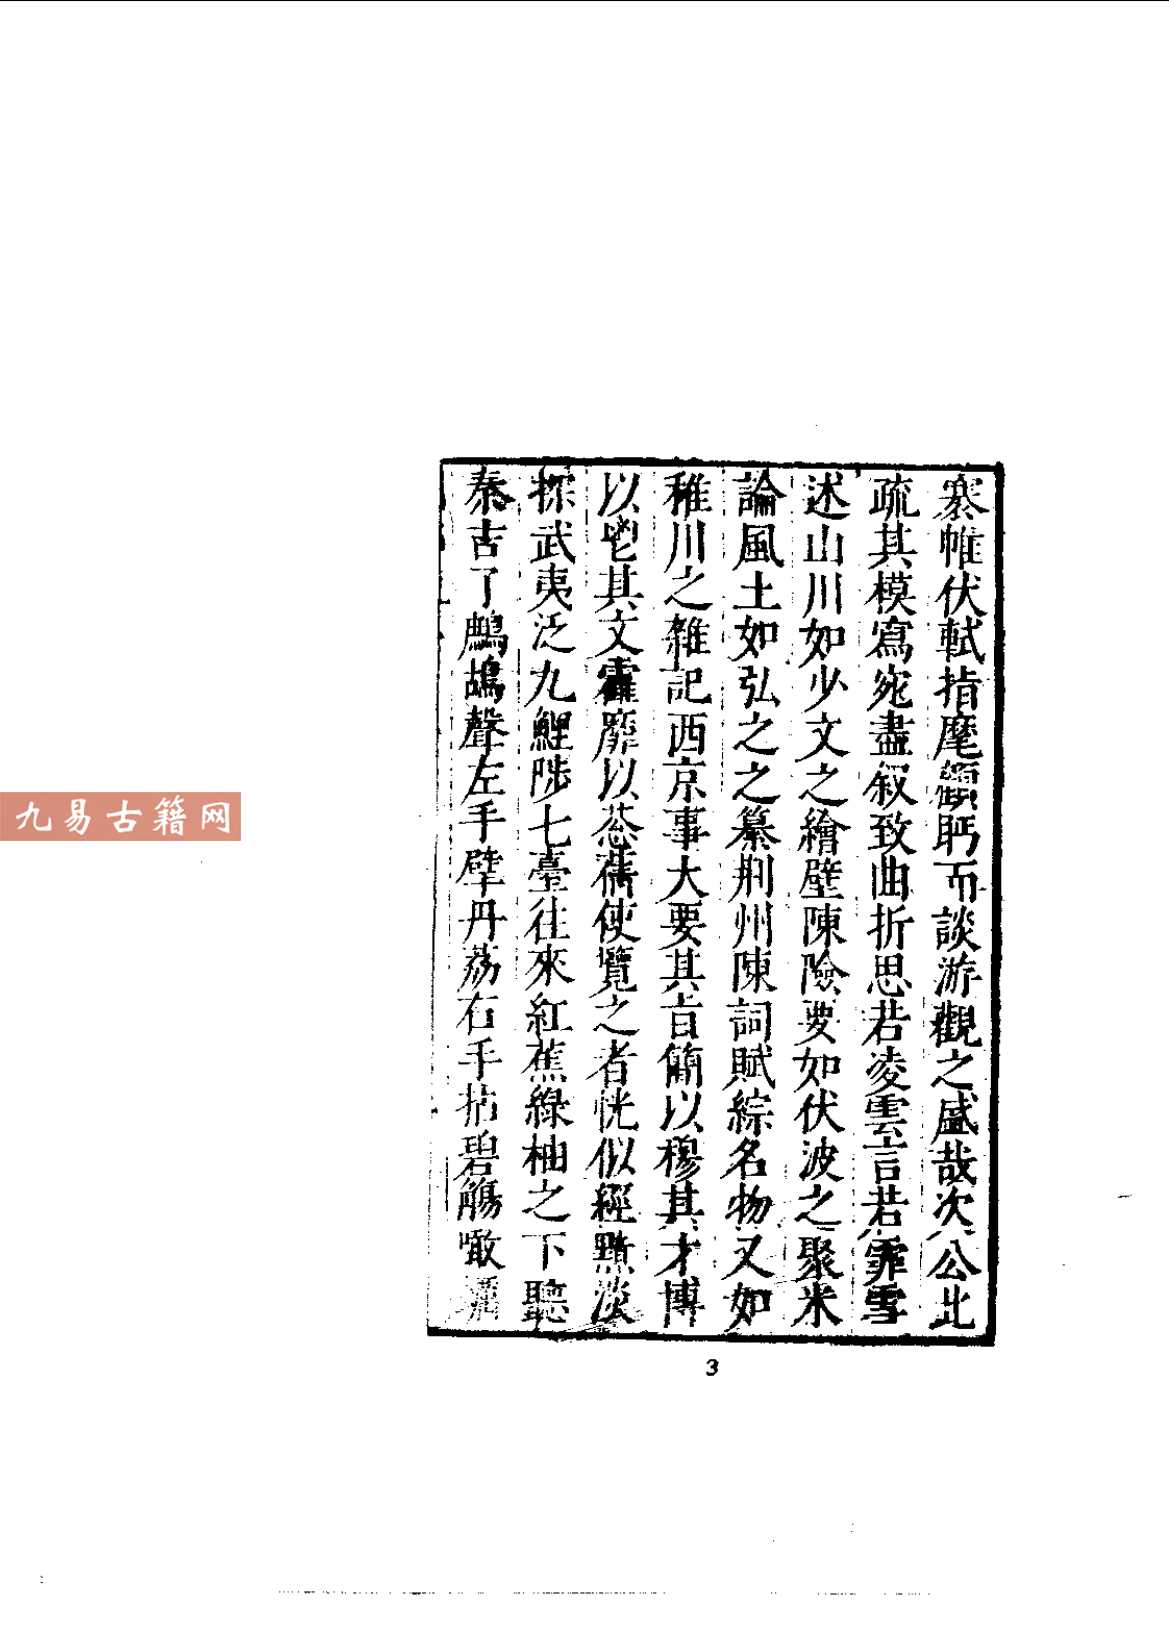 褰帷伏軾指麾顧眄而談游觀之盛哉次公此
疏其模寫宛盡叙致曲折思若凌雲言若霏雪
述山川如少文之繪壁陳險要如伏波之聚米
論風土如弘之之纂荆州陳詞賦綜名物又如
稚川之雜記西京事大要其旨簡以穆其才博
以鬯其文靡以使覽之者恍似經黙淡
探武夷泛九鯉陟七臺往來紅蕉綠柚之下聽
秦吉了鷓鴣聲左手擘丹荔右手拈碧觴噉
3
九易古籍网